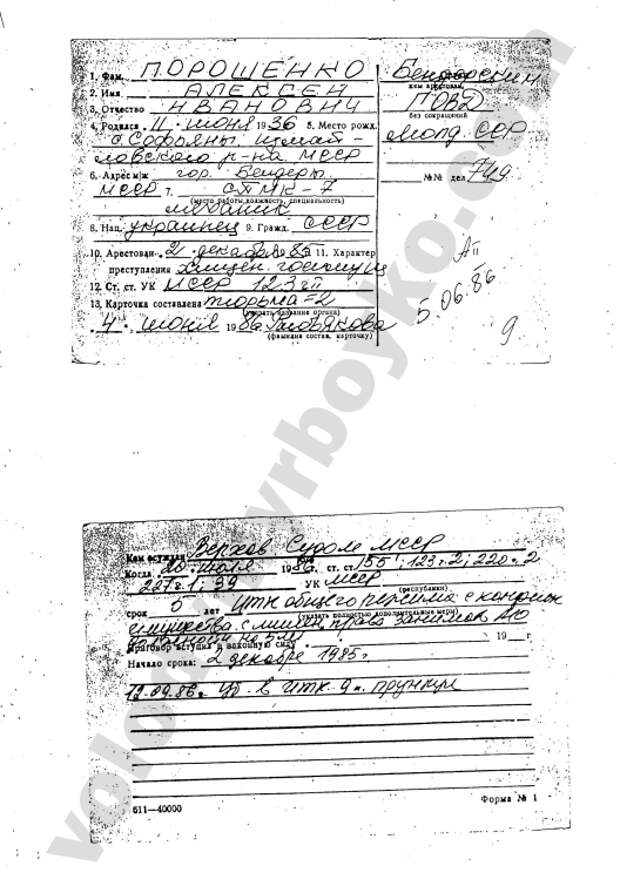 1. Фам. ПОРОШЕНКО
2. Имя АЛЕКСЕЙ
3. Отчество ИВАНОВИЧ
4. Родился 11. июня 1936 5. Место рожд.
с. Софьяны измаи-
ловского р-на МССР
6. Адрес м/ж гор. Бендеры
МССР 7. СПМК-7
(место работы, должность, специальность)
механик
8. Нац. украинец 9. Гражд. СССР
10. Арестован 2 декабря 85 11. Характер
преступления хищен. госимущ
12. Ст. ст. УК МССР 123 ч
13. Карточка составлена тюрьма-2
(указать название органа)
4. июня 1986
(фамилия состав. карточку)
Бендерским
кем арестован
ГОВД
без сокращений
Молд. ССР
№№ дел 749
5.06.86
9
Кем осужден Верхов. Судом МССР
Когда 20 июля 1986 ст. ст. 155; 123 ч. 2; 220 ч. 2
227 ч. 1; 39 УК МССР
(республики)
срок 5 лет итк общего режима с конфиск
(указать полностью дополнительные меры)
имущества с лишен. права занимать
на 5 лет
Приговор вступил в законную силу 19 г.
Начало срока: 2 декабря 1985 г.
12.09.86г. уб. в итк. 9 п. прункул
611—40000
Форма № 1
volodymyrboyko.com